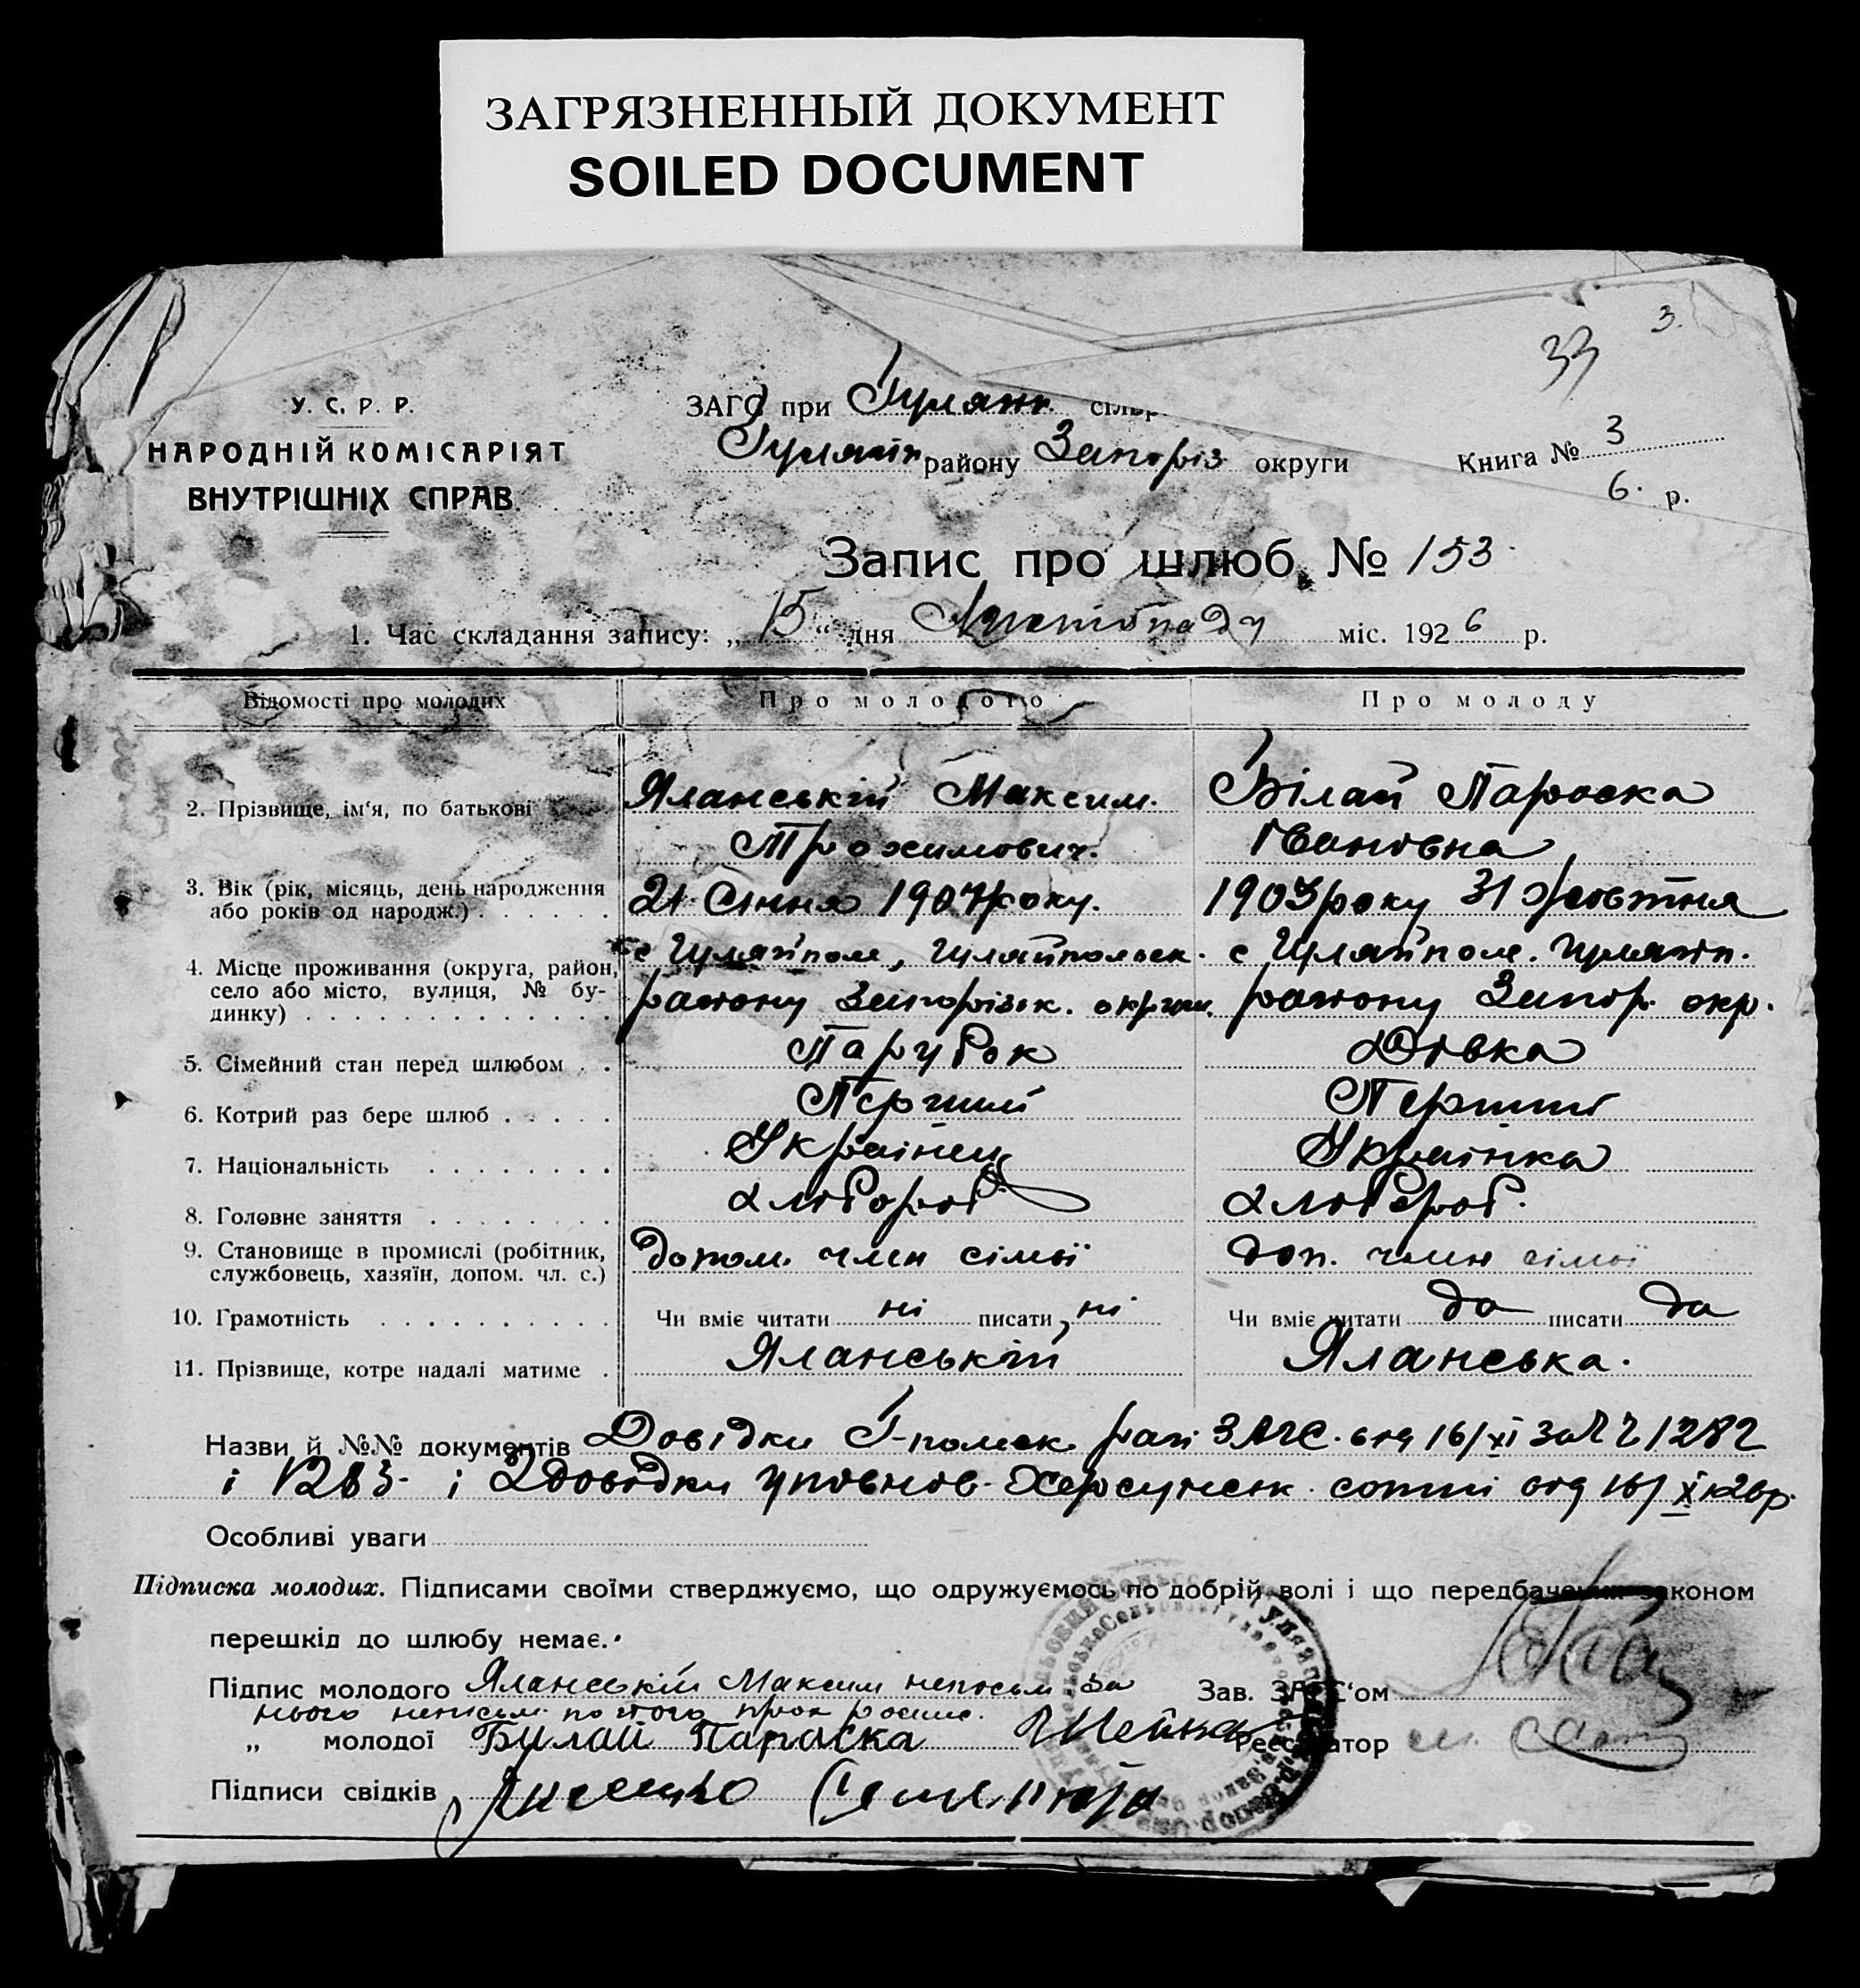 ЗАГРЯЗНЕННЫЙ ДОКУМЕНТ
SOILED DOCUMENT
3.
33
У. С. Р. Р.
НАРОДНІЙ КОМІСАРІЯТ
ВНУТРІШНІХ СПРАВ.
ЗАГС при Гуляйп. сільр
Гуляйп району Запоріз округи
Книга № 3
6. р.
Запис про шлюб, № 153
1. Час складання запису: „15“ дня Листопаду міс. 1926 р.
Відомості про молодих Про молодого Про молоду
2. Прізвище, ім‘я, по батькові Яланській Максим. Трохимович. Білай Параска Івановна
3. Вік (рік, місяць, день народження або років од народж.) 21 Січня 1907 року. 1903 року 31 Жовтня
4. Місце проживання (округа, район, село або місто, вулиця, № будинку) с Гуляйполе, Гуляйпольск. району Запорізьк. округи. с Гуляйполе. Гуляйп. району Запор. окр.
5. Сімейний стан перед шлюбом Парубок Дівка
6. Котрий раз бере шлюб Перший Перший
7. Національність Українец Українка
8. Головне заняття хлібороб хлібороб.
9. Становище в промислі (робітник, службовець, хазяїн, допом. чл. с.) допом. член сімьї доп. член сімьї
10. Грамотність Чи вміє читати ні писати ні Чи вміє читати да писати да
11. Прізвище, котре надалі матиме Яланській Яланська.
Назви й №№ документів Довідки Г-польск рай ЗАГС. від 16/XI за № 1282
і 1283 і 2 довідки уповнов. Херсунськ. сотні від 16/X 26р.
Особливі уваги
Підписка молодих. Підписами своїми стверджуємо, що одружуємось по добрій волі і що передбачених законом
перешкід до шлюбу немає.
Підпис молодого Яланській Максим неписьм за Зав. ЗАГС‘ом
нього неписьм по його прох росписе.
„ молодої Булай Параска Реєстратор
Підписи свідків